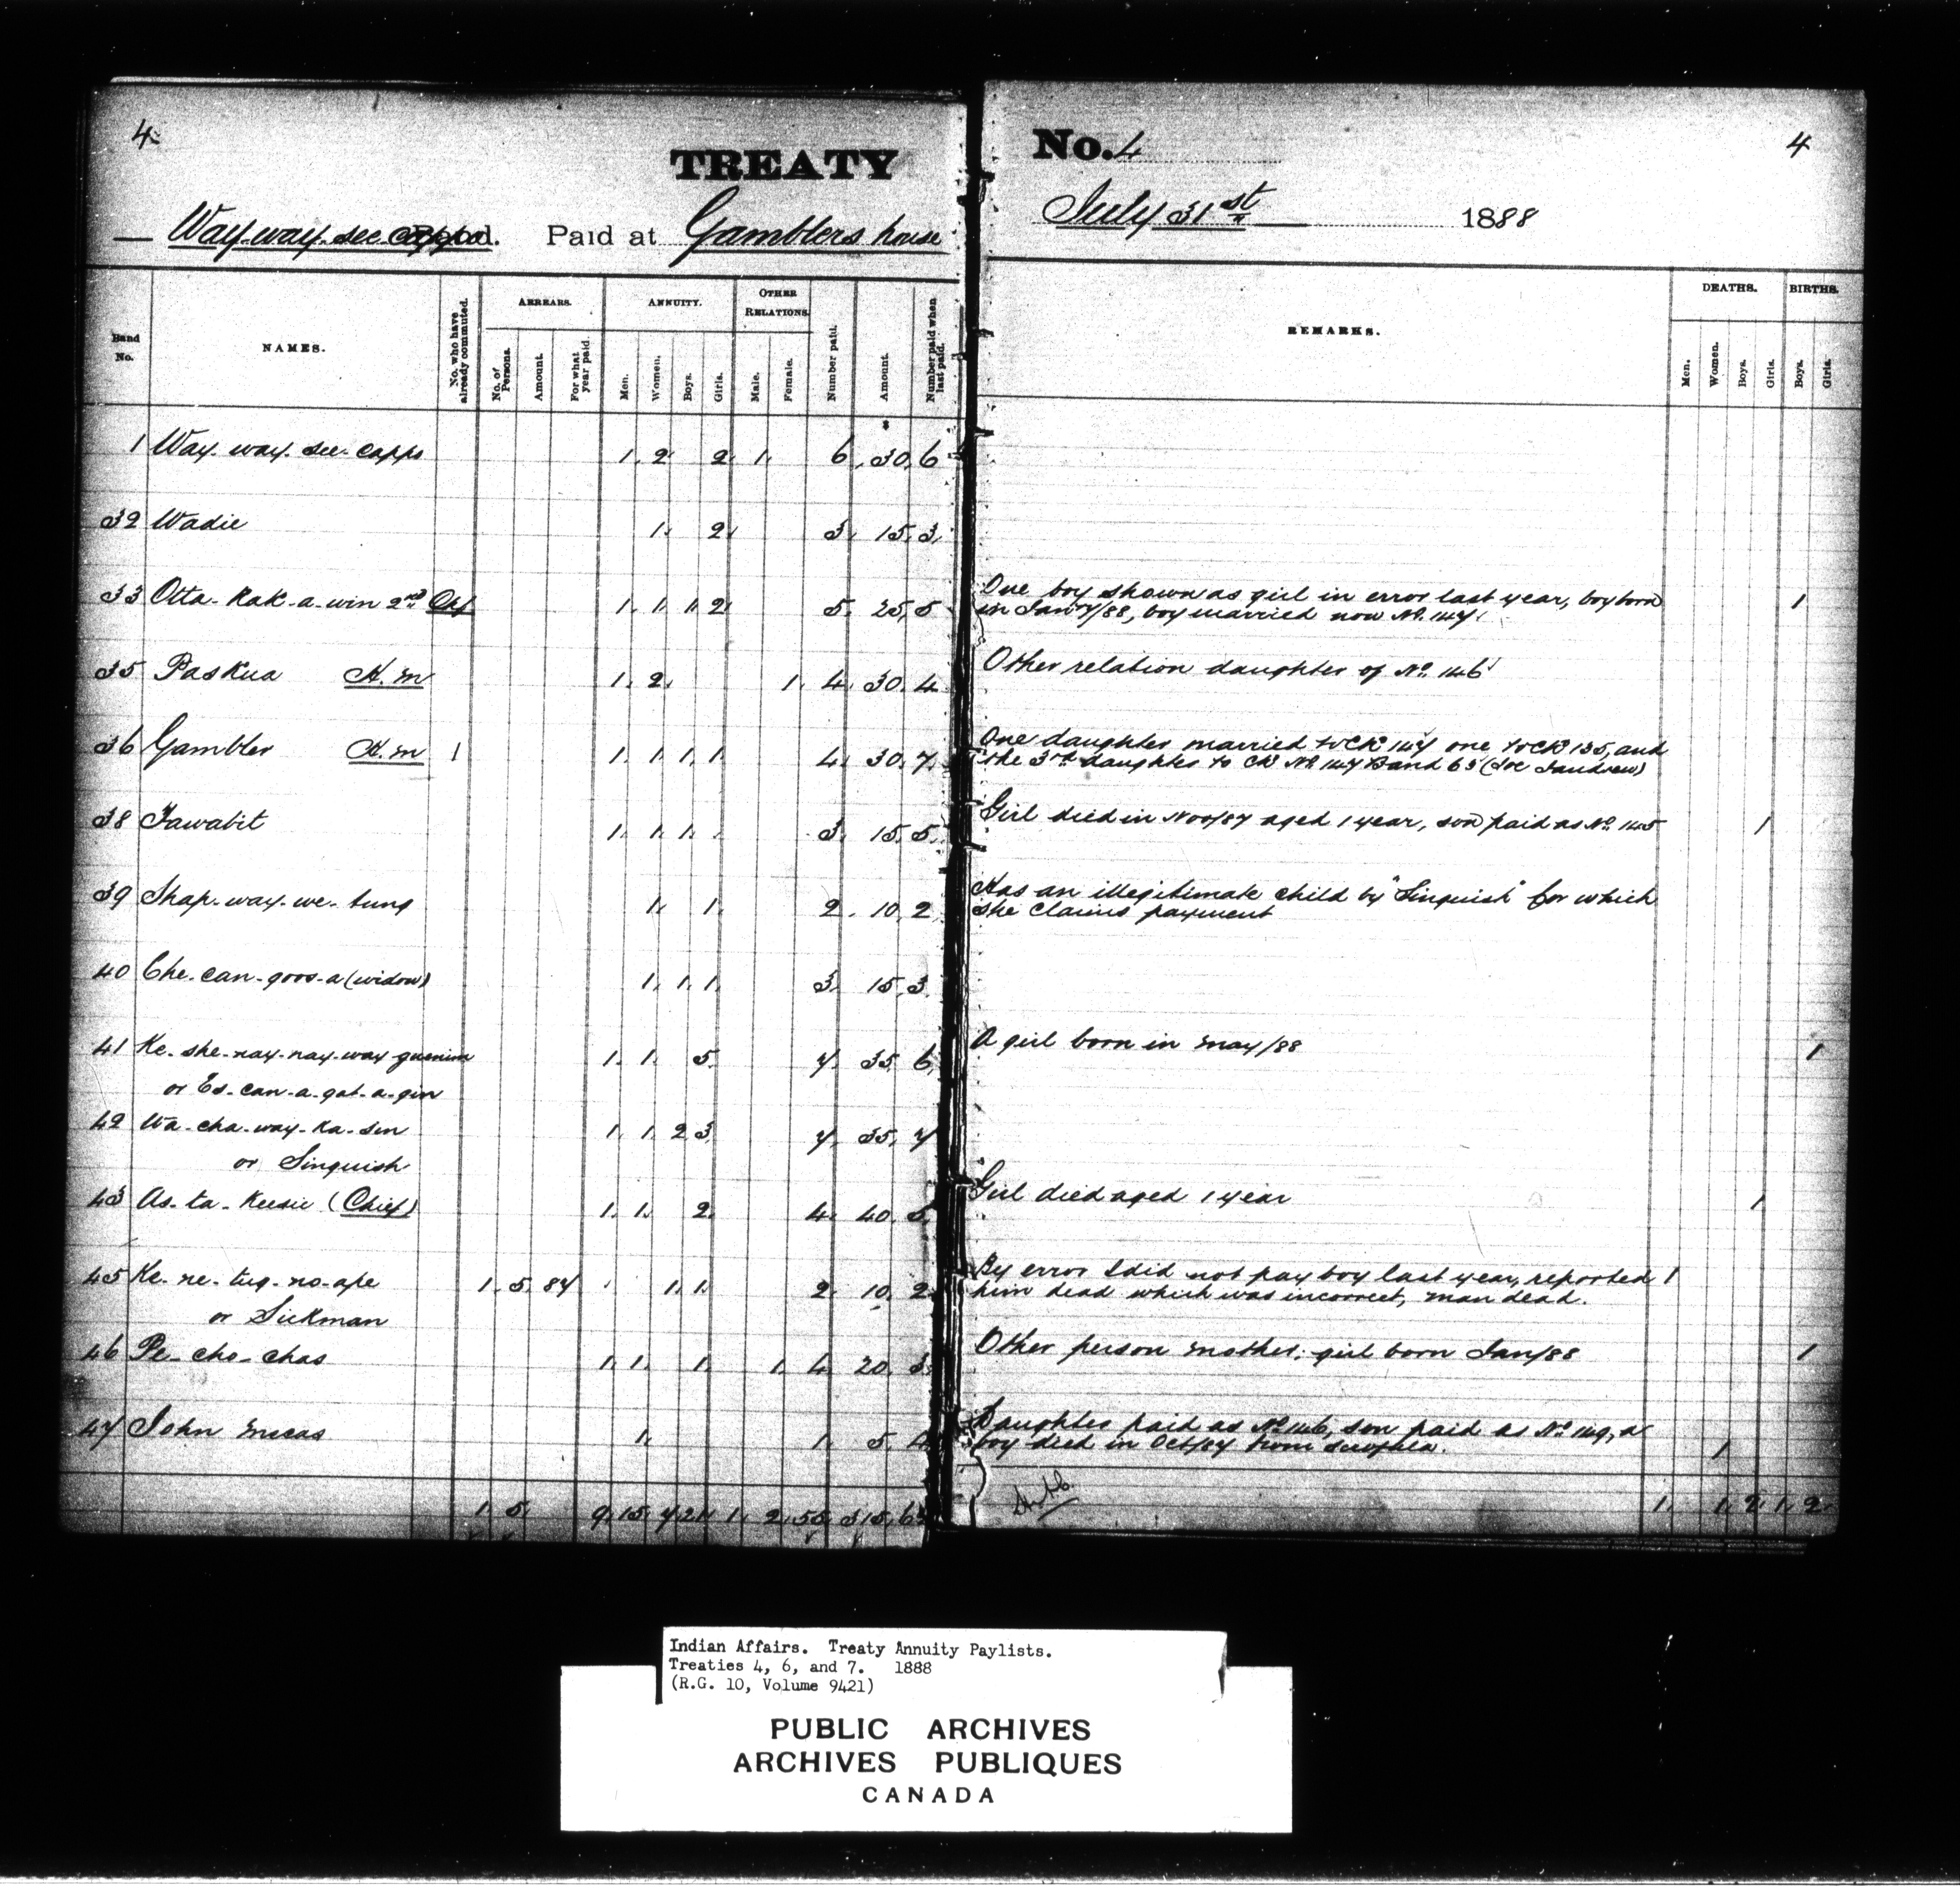 4
TREATY
No. 4
4
Way-way-see-capps Band. Paid at Gamblers house
July 31st 1888
Band No.
NAMES.
No. who have already commuted.
ARREARS.
No. of Persons.
Amount.
For what year paid.
ANNUITY.
Men.
Women.
Boys.
Girls.
OTHER RELATIONS.
Male.
Female.
Number paid.
Amount.
Number paid when last paid.
REMARKS.
DEATHS.
Men.
Women.
Boys.
Girls.
BIRTHS.
Boys.
Girls.
1 Way-way-see-capps 1 2 2 1 6 30 6
32 Wadie 1 2 3 15 3
33 Otta-kak-a-win 2nd 1 1 1 2 5 25 5 One boy shown as girl in error last year, boy born 1
in Jany/88, boy married now No. 147
35 Paskua H.m 1 2 1 4 30 4 Other relation daughter of No. 146
36 Gambler H.m 1 1 1 1 1 4 30 7 One daughter married to CK 147 one to CK 135, and
the 3rd daughter to CK No. 147 Band 63
38 Tawabit 1 1 1 3 15 5 Girl died in Nov/87 aged 1 year, son paid as No. 145 1
39 Shap-way-we-tung 1 1 2 10 2 Has an illegitimate child by "Sinquish" for which
she claims payment
40 Che-can-goos-a (widow) 1 1 1 3 15 3
41 Ke-she-nay-nay-way-guenim 1 1 5 7 35 6 A girl born in may/88 1
or Es-can-a-gat-a-gin
42 Wa-cha-way-ka-sin 1 1 2 3 7 35 7
or Sinquish
43 As-ta-keesie (Chief) 1 1 2 4 40 5 Girl died aged 1 year 1
45 Ke-ne-tug-no-ape 1 5 87 1 1 2 10 2 By error I did not pay boy last year, reported 1
or Sickman him dead which was incorrect, man dead.
46 Pe-cho-chas 1 1 1 1 4 20 3 Other person mother; girl born Jan/88 1
47 John mecas 1 1 5 4 Daughter paid as No. 146, son paid as No. 149, a
boy died in Oct/87 from scrophla. 1
1 5 9 15 7 21 1 2 55 315 1 1 2 1 2
Indian Affairs. Treaty Annuity Paylists.
Treaties 4, 6, and 7. 1888
(R.G. 10, Volume 9421)
PUBLIC ARCHIVES
ARCHIVES PUBLIQUES
CANADA